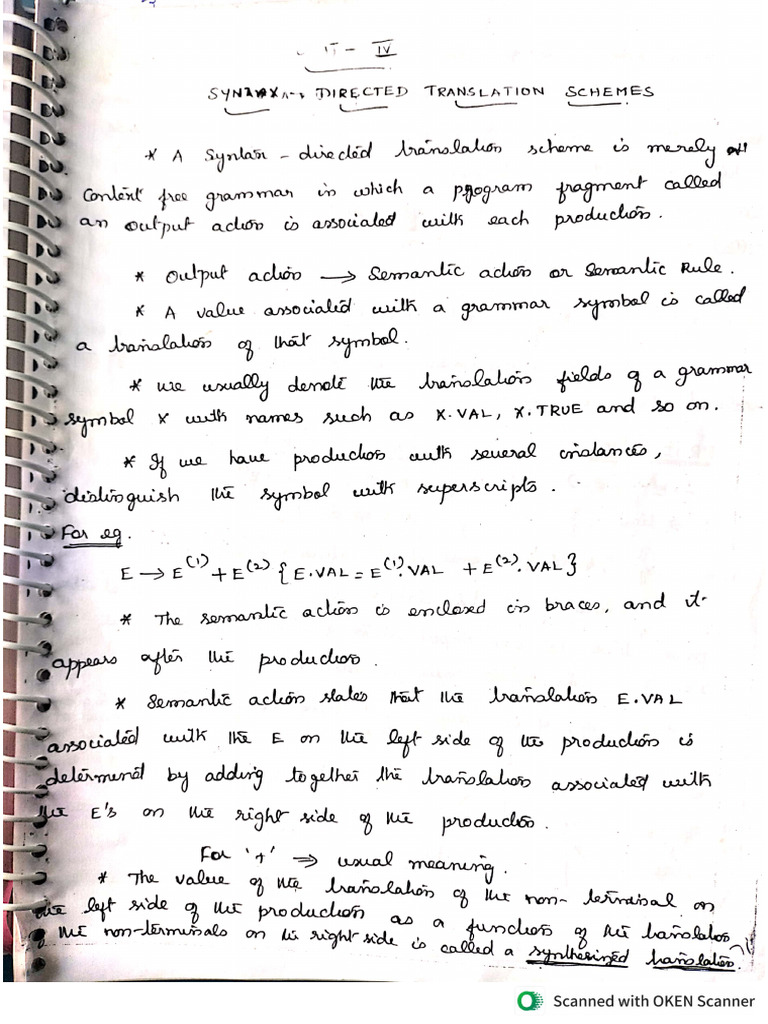 IV
SYNTAX DIRECTED TRANSLATION SCHEMES
* A Syntax - directed translation scheme is merely a
Context free grammar in which a program fragment called
an output action is associated with each production.
* Output action → Semantic action or Semantic Rule.
* A value associated with a grammar symbol is called
a translation of that symbol.
* We usually denote the translation fields of a grammar
symbol X with names such as X.VAL, X.TRUE and so on.
* If we have production with several instances,
distinguish the symbol with superscripts.
For eg.
E → E(1) + E(2) { E.VAL = E(1).VAL + E(2).VAL }
* The semantic action is enclosed in braces, and it
appears after the production.
* Semantic action states that the translation E.VAL
associated with the E on the left side of the production is
determined by adding together the translation associated with
the E's on the right side of the production.
For '+' → usual meaning.
* The value of the translation of the non-terminal on
the left side of the production as a function of the translation
of the non-terminals on the right side is called a synthesized translation.
Scanned with OKEN Scanner